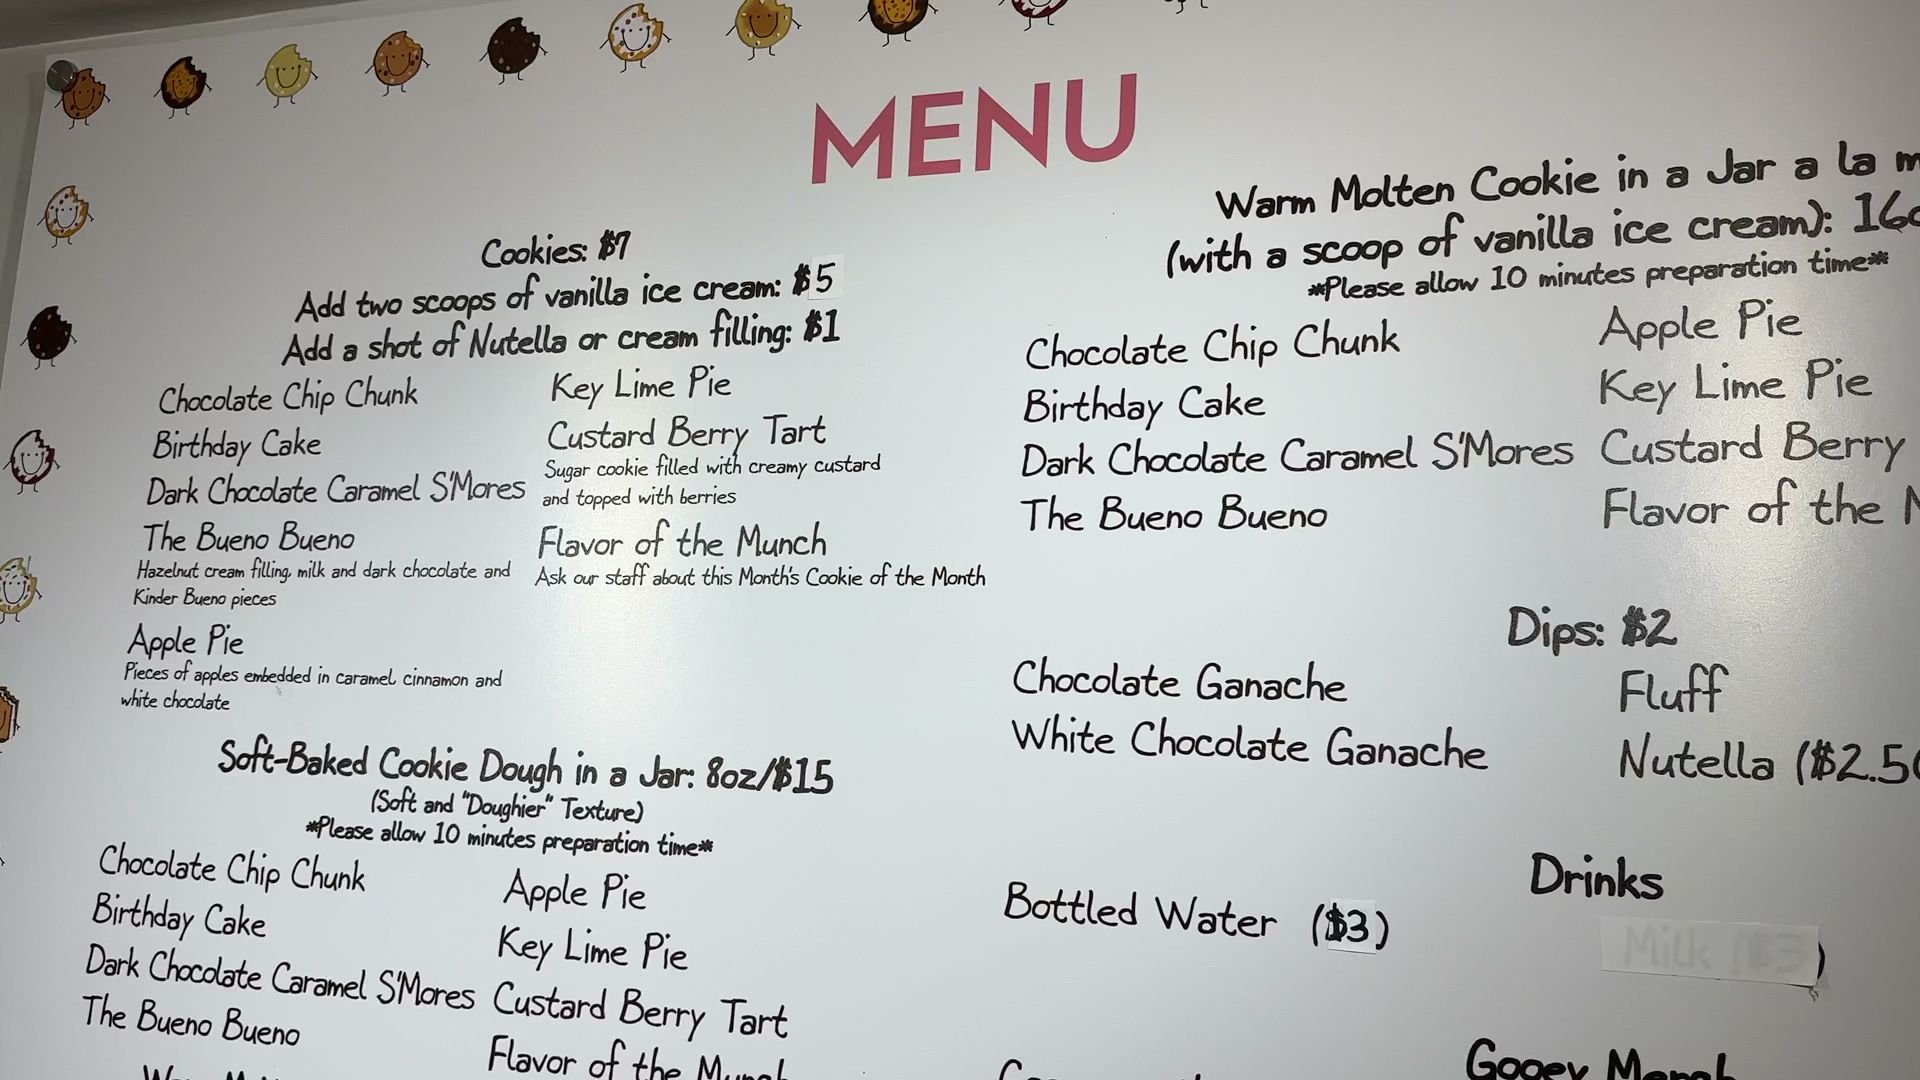 MENU
Cookies: $7
Add two scoops of vanilla ice cream: $5
Add a shot of Nutella or cream filling: $1
Chocolate Chip Chunk
Birthday Cake
Dark Chocolate Caramel S'Mores
The Bueno Bueno
Hazelnut cream filling, milk and dark chocolate and
Kinder Bueno pieces
Apple Pie
Pieces of apples embedded in caramel, cinnamon and
white chocolate
Key Lime Pie
Custard Berry Tart
Sugar cookie filled with creamy custard
and topped with berries
Flavor of the Munch
Ask our staff about this Month's Cookie of the Month
Soft-Baked Cookie Dough in a Jar: 8oz/$15
(Soft and "Doughier" Texture)
*Please allow 10 minutes preparation time*
Chocolate Chip Chunk
Birthday Cake
Dark Chocolate Caramel S'Mores
The Bueno Bueno
Apple Pie
Key Lime Pie
Custard Berry Tart
Flavor of the Munch
Warm Molten Cookie in a Jar a la
(with a scoop of vanilla ice cream):
*Please allow 10 minutes preparation time*
Chocolate Chip Chunk
Birthday Cake
Dark Chocolate Caramel S'Mores
The Bueno Bueno
Apple Pie
Key Lime Pie
Custard Berry
Flavor of the
Dips: $2
Chocolate Ganache
White Chocolate Ganache
Fluff
Nutella ($2.50
Drinks
Bottled Water ($3)
Milk ($3)
Gooey